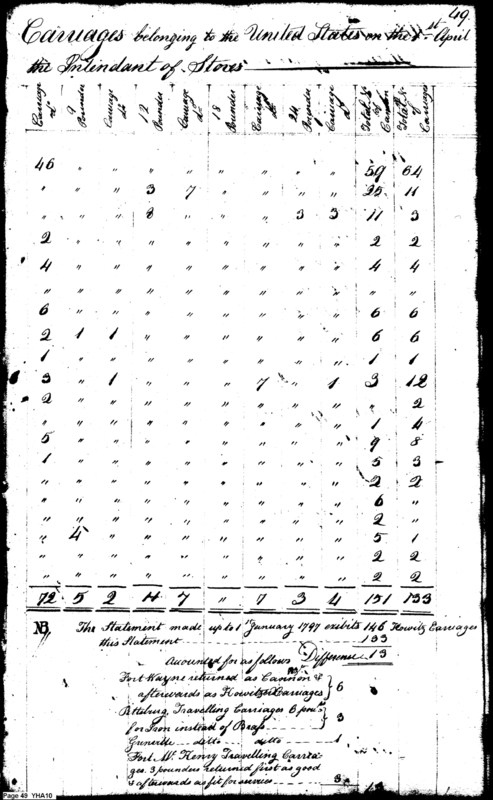 49
Carriages belonging to the United States on the 1st April
the Intendant of Stores
Carriage do | 9 Pounder | Carriage do | 12 Pounder | Carriage do | 18 Pounder | Carriage do | 24 Pounder | Carriage do | Total No of Cannon | Total No of Carriages
46 " " " " " " " " 59 64
" " " 3 7 " " " " 25 11
" " " 8 " " " 3 3 11 3
2 " " " " " " " " 2 2
4 " " " " " " " " 4 4
" " " " " " " " " " "
6 " " " " " " " " 6 6
2 1 1 " " " " " " 6 6
1 " " " " " " " " 1 1
3 " 1 " " " 7 " 1 3 12
2 " " " " " " " " " 2
" " " " " " " " " 1 4
5 " " " " " " " " 9 8
1 " " " " " " " " 5 3
" " " " " " " " " 2 2
" " " " " " " " " 6 "
" " " " " " " " " 2 "
" 4 " " " " " " " 5 1
" " " " " " " " " 2 2
" " " " " " " " " 2 2
72 5 2 11 7 " 7 3 4 151 133
NB The Statement made up to 1st January 1797 exibits 146 Howitz Carriages
this Statement 133
Difference 13
Accounted for as follows
Fort Wayne returned as Cannon &
afterwards as Howitzer Carriages } 6
Pittsburg, Travelling Carriages 6 pours
for Iron instead of Brass } 3
Grenville ditto ditto 1
Fort Mc Henry Travelling Carria
ges. 3 pounders returned first as good
& afterwards as fit for service 3
13
Page 49 YHA10